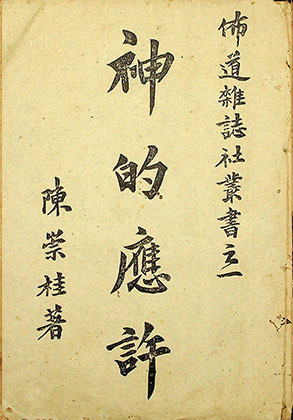 佈道雜誌社叢書之一
神的應許
陳崇桂著